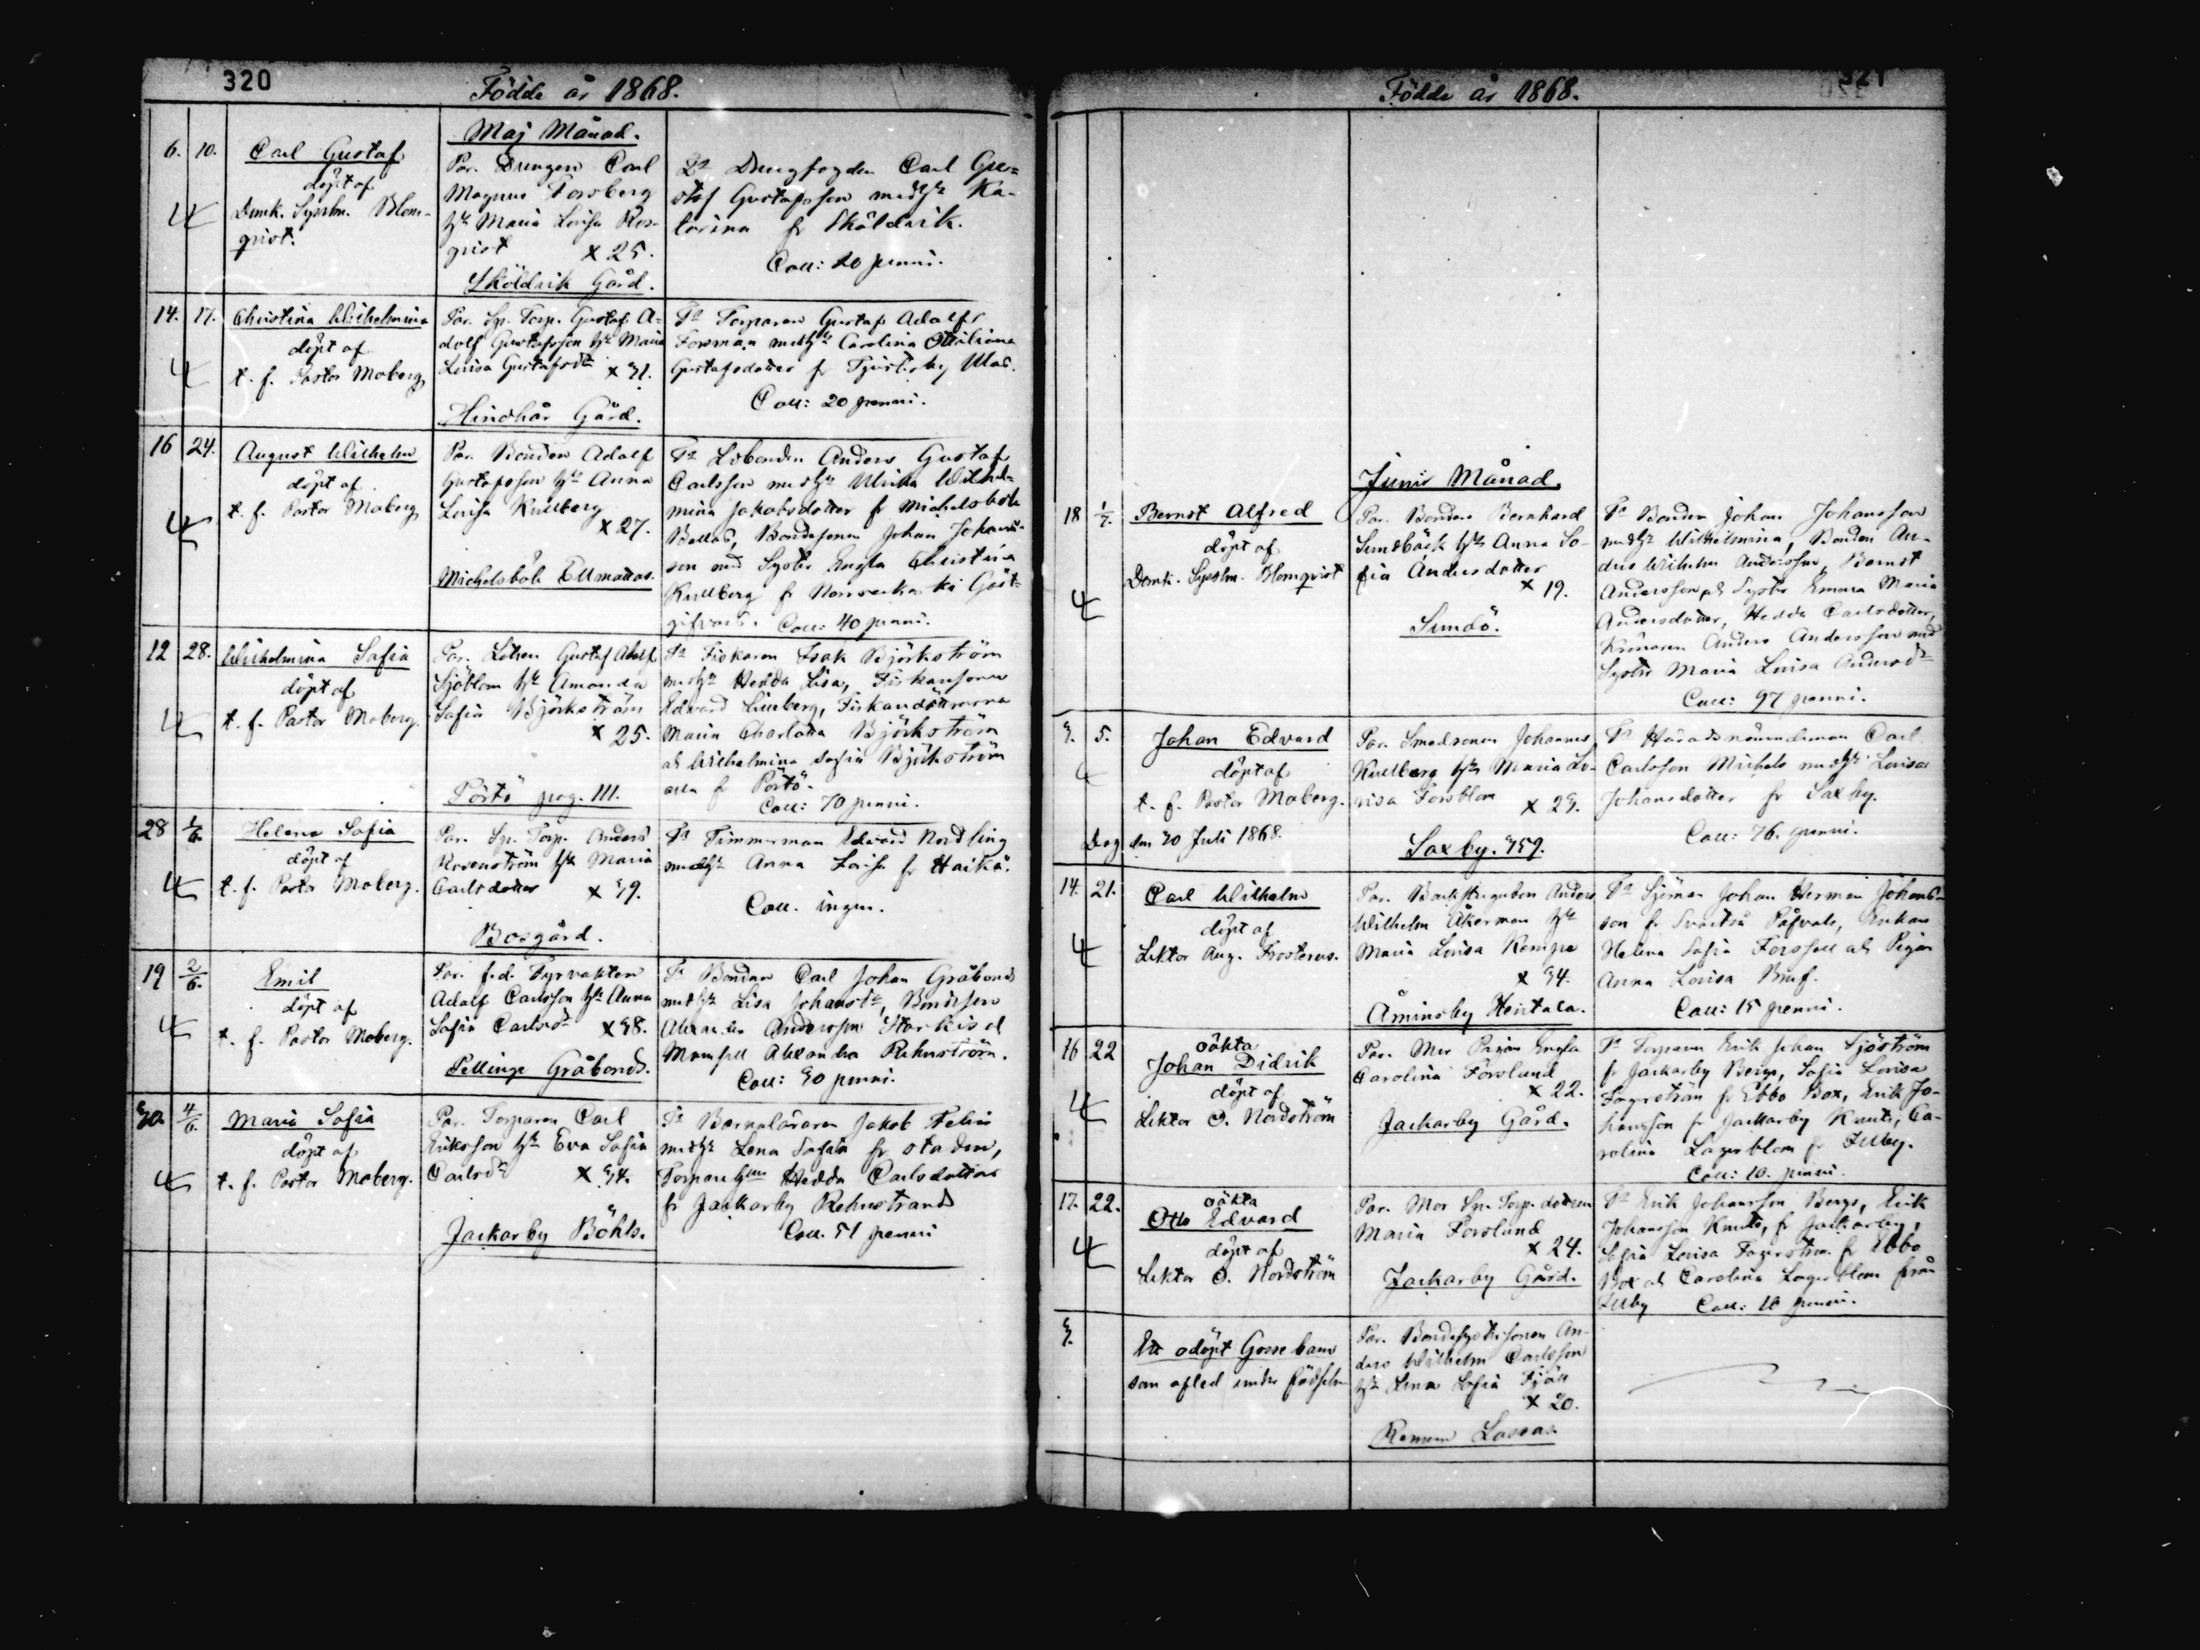 320
Födde år 1868.
Maj Månad.
6. 10. Carl Gustaf
döpt af
Domk. Sysslm. Blom-
qvist.
Par. Drengen Carl
Magnus Forsberg
hu Maria Lovisa Ros-
qvist × 25.
Sköldvik Gård.
Drengfogden Carl Gu-
staf Gustafsson med hu Ka-
tarina fr Sköldvik.
Coll: 20 penni.
14. 17. Christina Wilhelmina
döpt af
t. f. Pastor Moberg
Par. Sp. Torp. Gustaf A-
dolf Gustafsson hu Maria
Lovisa Gustafsdr × 31.
Hindhår Gård.
Torparen Gustaf Adolf
Forsman med hu Carolina
Gustafsdotter fr
Coll: 20 penni.
16 24. August Wilhelm
döpt af
t. f. Pastor Moberg
Par. Bonden Adolf
Gustafsson hu Anna
Lovisa Kullberg
× 27.
Michelsböle Ellmattas.
Anders Gustaf
Carlsson med hu Ulrika Wilhel-
mina Jakobsdotter fr Michelsböle
Bondesonen Johan Johans-
son med Syster Engla Christina
Kullberg fr Gäst-
Coll: 40 penni.
12 28. Wilhelmina Sofia
döpt af
t. f. Pastor Moberg.
Par. Lotsen Gustaf Adolf
Sjöblom hu Amanda
Sofia Björkström
× 25.
Pörtö pag. 111.
Fiskaren Isak Björkström
med hu Hedda Lisa, Fiskarsonen
Edvard Lindberg, Fiskaredöttrarna
Maria Charlotta Björkström
och Wilhelmina Sofia Björkström
alla fr Pörtö.
Coll: 70 penni.
28 1/6. Helena Sofia
döpt af
t. f. Pastor Moberg.
Par. Sp. Torp. Anders
Rosenström hu Maria
Carlsdotter × 39.
Bosgård.
Timmerman Edvard Nordling
med hu Anna Lovisa fr Haikå.
Coll. ingen.
19 2/6. Emil
döpt af
t. f. Pastor Moberg.
Par. f.d. Fyrvaktaren
Adolf Carlsson hu Anna
Sofia Carlsdr × 38.
Pellinge Gråbonds.
Bonden Carl Johan Gråbonds
med hu Lisa Johansdr, Bondeson
Alexander Andersson
Mamsell Alexandra Rehnström.
Coll: 30 penni.
30. 4/6. Maria Sofia
döpt af
t. f. Pastor Moberg.
Par. Torparen Carl
Eriksson hu Eva Sofia
Carlsdr × 34.
Jackarby Böhls.
Barnaläraren Jakob Felin
med hu Lena Sofia fr staden,
Hedda Carlsdotter
fr Jackarby Rehnstrand
Coll. 51 penni
321
Födde år 1868.
Junii Månad.
18 1/7. Bernst Alfred
döpt af
Domk. Sysslm. Blomqvist
Par. Bonden Bernhard
Sundbäck hu Anna So-
fia Andersdotter
× 19.
Sundö.
Bonden Johan Johansson
med hu Wilhelmina, Bonden An-
ders Wilhelm Andersson, Bernst
Andersson och Syster Emma Maria
Andersdotter, Hedda Carlsdotter,
Krönaren Anders Andersson med
Syster Maria Lovisa Andersdr
Coll: 97 penni.
3. 5. Johan Edvard
döpt af
t. f. Pastor Moberg.
Dog den 30 Juli 1868.
Par. Smedsonen Johannes
Kullberg hu Maria Lo-
visa Forsblom × 29.
Saxby. 359.
Häradsnämndeman Carl
Carlsson Michels med hu Lovisa
Johansdotter fr Saxby.
Coll: 76. penni.
14. 21. Carl Wilhelm
döpt af
Lektor Aug. Frosterus.
Par. Backstugubon Anders
Wilhelm Åkerman hu
Maria Lovisa Kempe
× 34.
Åminsby Heikkala.
Sjöman Johan Herman Johans-
son fr Svartså Påfvals, Enkan
Helena Sofia Forssell och Pigan
Anna Lovisa
Coll: 15 penni.
16 22 oäkta
Johan Didrik
döpt af
Lektor O. Nordström
Par. Mor Pigan Engla
Carolina Forslund
× 22.
Jackarby Gård.
Torparen Erik Johan Sjöström
fr Jackarby Bergs, Sofia Lovisa
Fagerström fr Ebbo Box, Erik Jo-
hansson fr Jackarby Knuts, Ca-
rolina Lagerblom fr Illby.
Coll: 10. penni.
17. 22. oäkta
Otto Edvard
döpt af
Lektor O. Nordström
Par. Mor Sp. Torp. dottern
Maria Forslund
× 24.
Jackarby Gård.
Erik Johansson Bergs, Erik
Johansson Knuts, fr Jackarby,
Sofia Lovisa Fagerström fr Ebbo
Box och Carolina Lagerblom från
Illby Coll: 10 penni.
3. Ett odöpt Gossebarn
som afled under födseln
Par. An-
ders Wilhelm Carlsson
hu Lena Sofia
× 20.
Lassas.